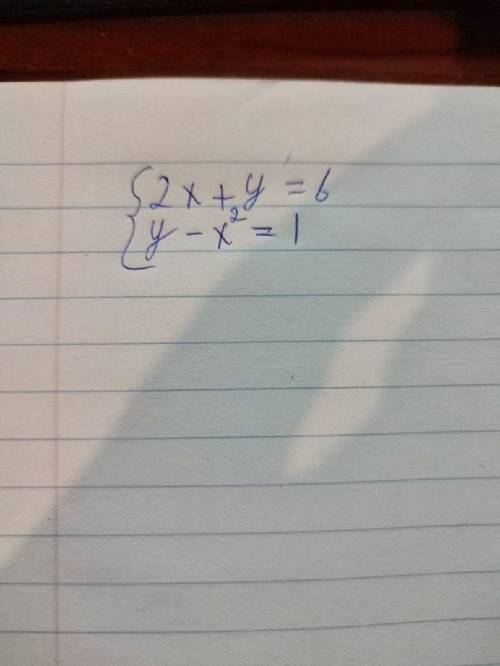 {2x+y=6
{y-x²=1